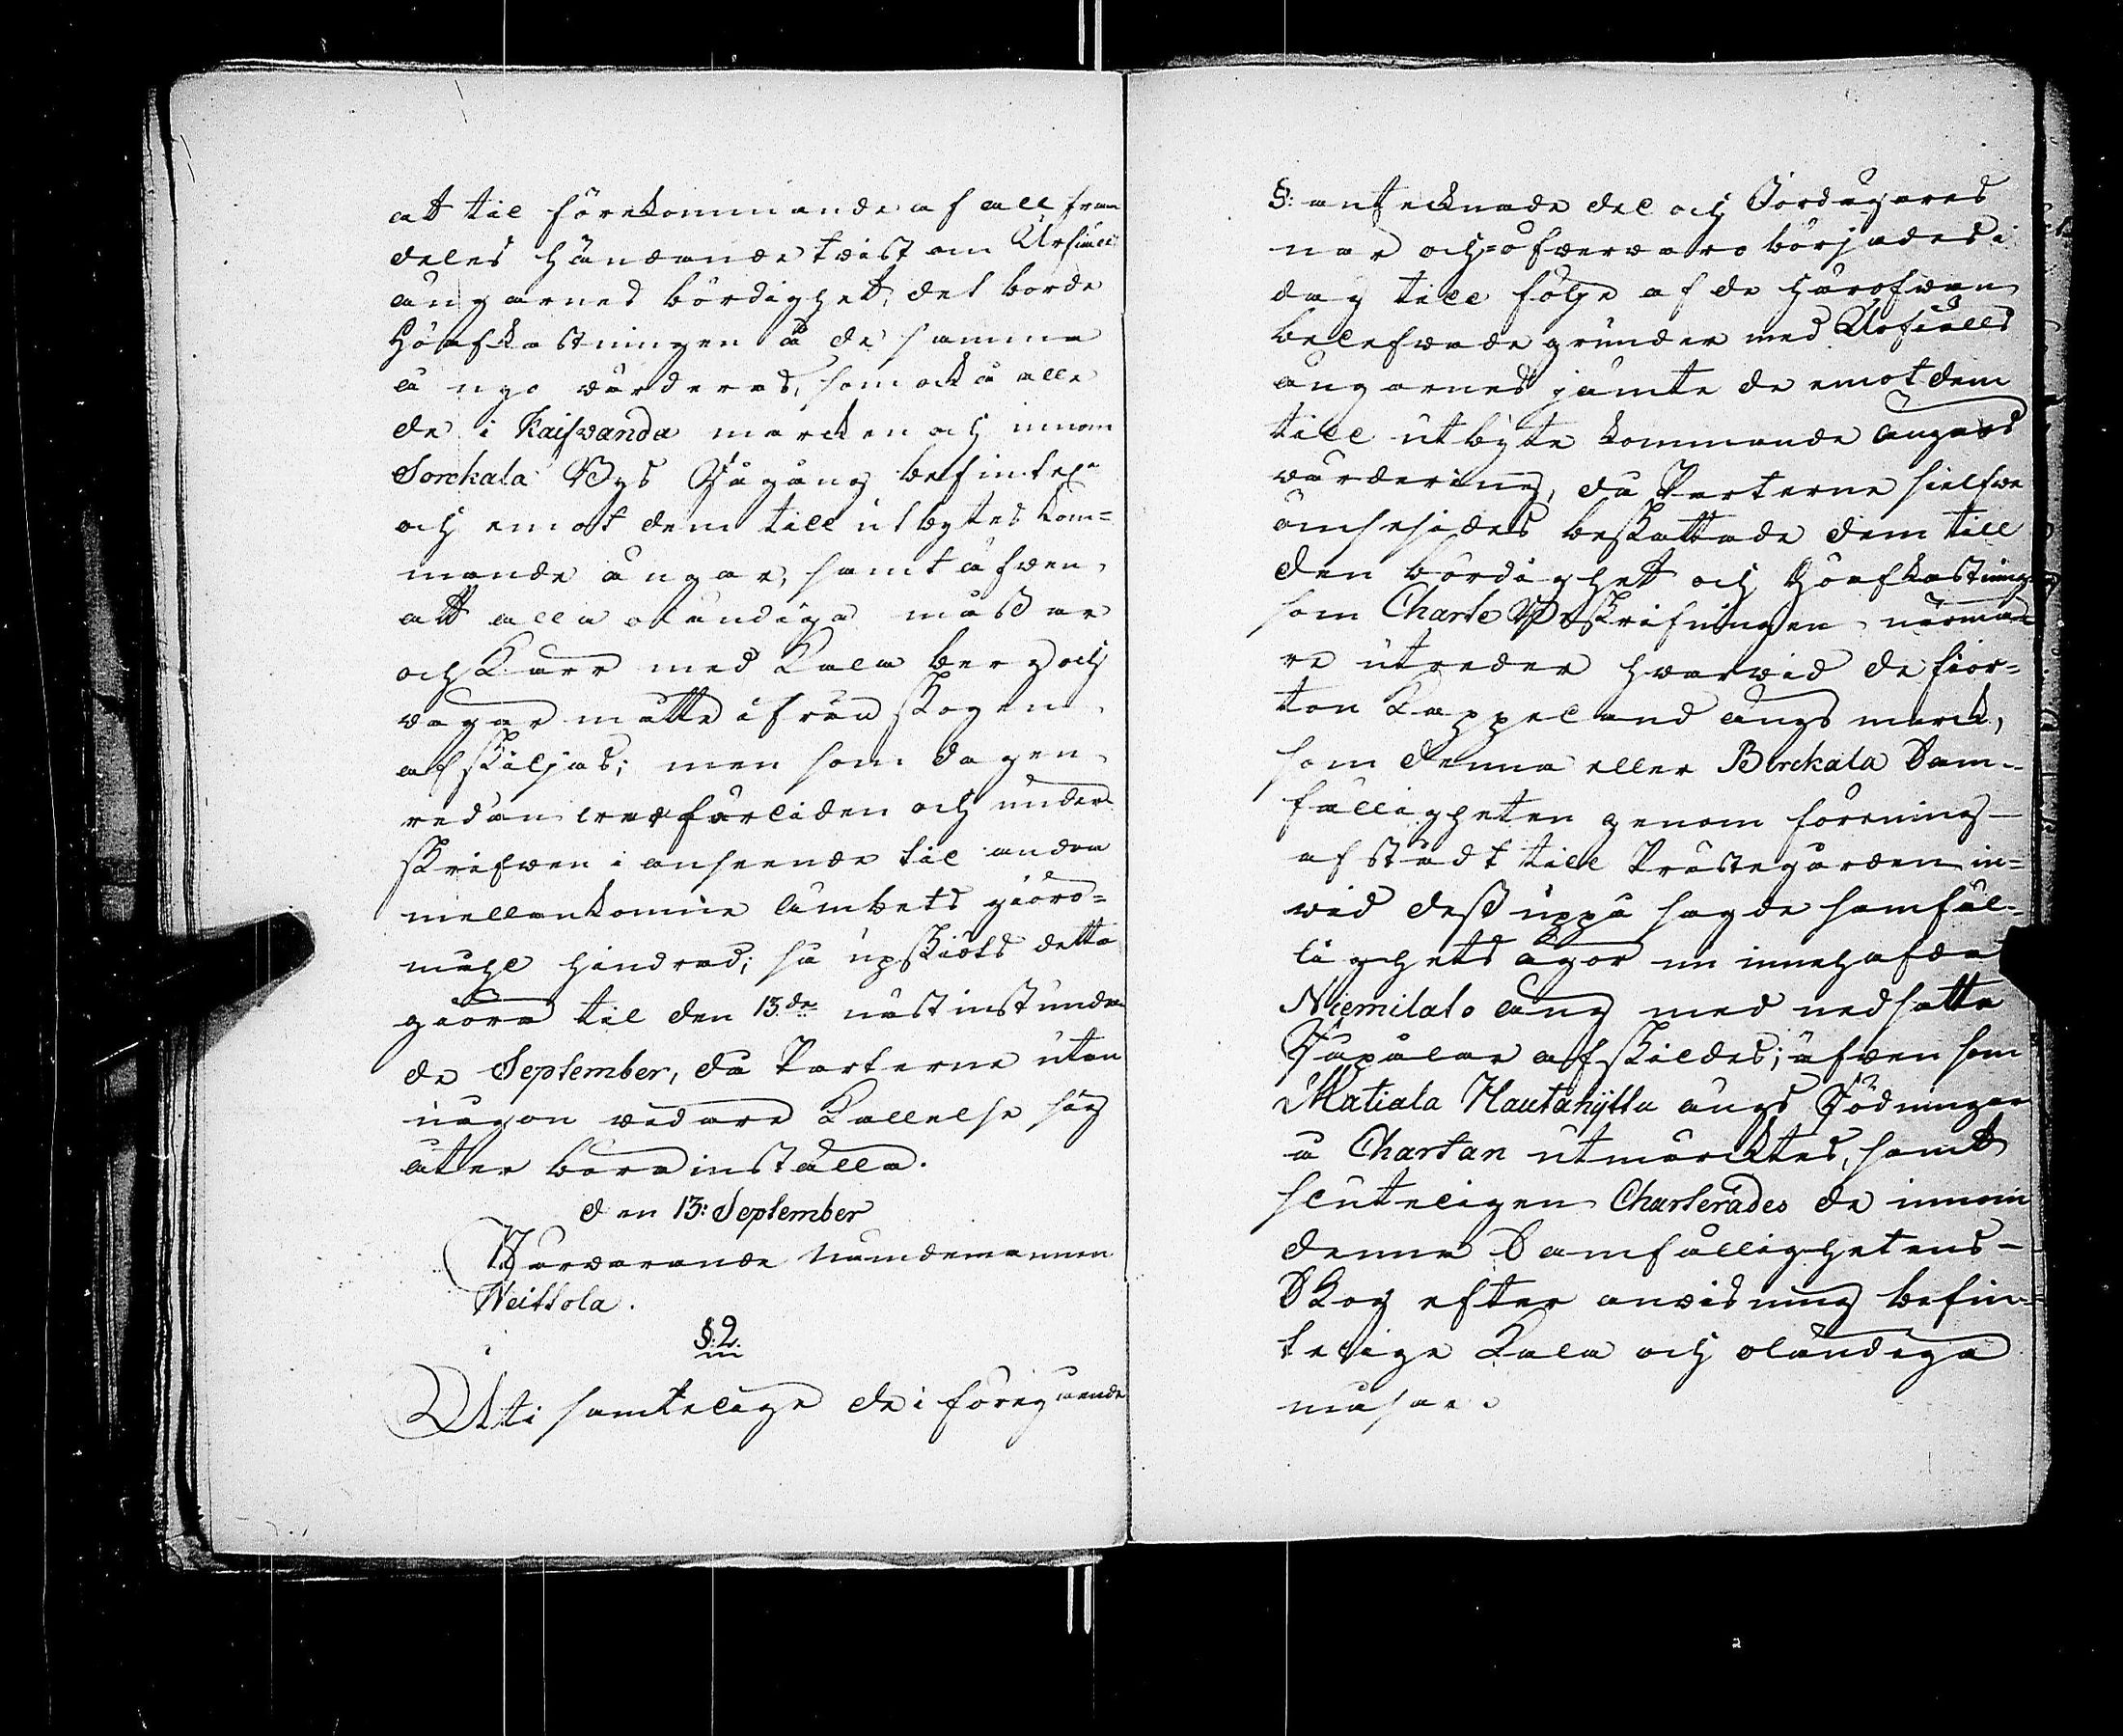 att til förekommande af all fram
deles händande twist om Urfiälls
ängarnes bördighet, det borde
Höafkastningen å de samma
å nyo värderas, som ock å alla
de i Kaifvanda marcken och innom
Sorckala Bys Rågång befintel:a
och emot dem till utbytes kom=
mande ängar, samt äfven
att alla oländiga måssar
och Kärr med Kala berg och
vägar måtte ifrån skogen
afskiljas; men som dagen
redan war förliden och under
skrifven i anseende til andra
mellankomne ämbets giörо=
måhl hindrad; så upskiöts detta
giöra til den 13de näst instunda
de September, då Parterne utan
någon widare Kallelse sig
åter böra inställa.
den 13: September
Närvarande Nämndemannen
Weittola.
§. 2.
Uti samtelige de i föregående
§: antecknade del och Jordägares
när och=öfvervaro börjades i
dag till följe af de härofvan
belefvade grunder med Urfiälls
ängarnes jämte de emot dem
till utbyte kommande ängars
värdering, då Parterne sielfve
ömsesides beskattade dem till
den bördighet och Höafkastning
som Charte Beskrifningen närma=
re utreder hvarvid de fior=
ton Kappeland ängs marck,
som denna eller Birckala Sam=
fälligheten genom förening
afstådt till Prästegården in=
vid dess uppå sagde samfäl=
lighets ägor nu innehafda
Niemilato äng med nedsatte
Råpålar afskildes; äfven som
Matiala Hautahÿtta ängs Rödningar
å Chartan utmärcktes, samt
sluteligen Charterades de innom
denna Samfällighetens
Skog efter anvisning befin=
telige Kala och oländiga
måsar.